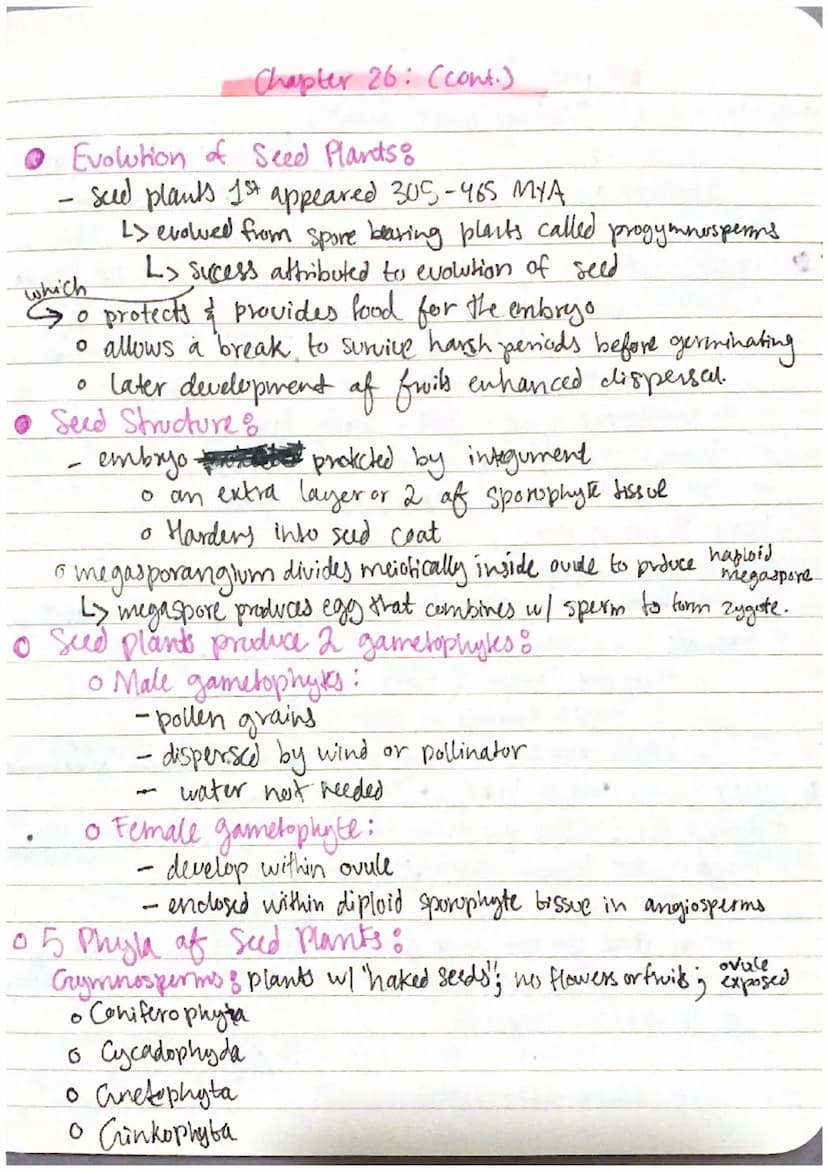 Chapter 26: (cont.)
Evolution of Seed Plants:
- seed plants 1st appeared 305-465 MYA
↳ evolved from spore bearing plants called progymnosperms
↳ sucess attributed to evolution of seed
which
↳ o protects & provides food for the embryo
o allows a break to survive harsh periods before germinating
o later development of fruits enhanced dispersal.
Seed Structure:
- embryo protected by integument
o an extra layer or 2 of sporophyte tissue
o Hardens into seed coat
o megasporangium divides meiotically inside ovule to produce haploid megaspore
↳ megaspore produces egg that combines w/ sperm to form zygote.
o Seed plants produce 2 gametophytes:
o Male gametophytes:
- pollen grains
- dispersed by wind or pollinator
- water not needed
o Female gametophyte:
- develop within ovule
- enclosed within diploid sporophyte tissue in angiosperms
o 5 Phyla of Seed Plants:
Gymnosperms: plants w/ "naked seeds"; no flowers or fruits; ovule exposed
o Coniferophyta
o Cycadophyda
o Gnetophyta
o Ginkophyta